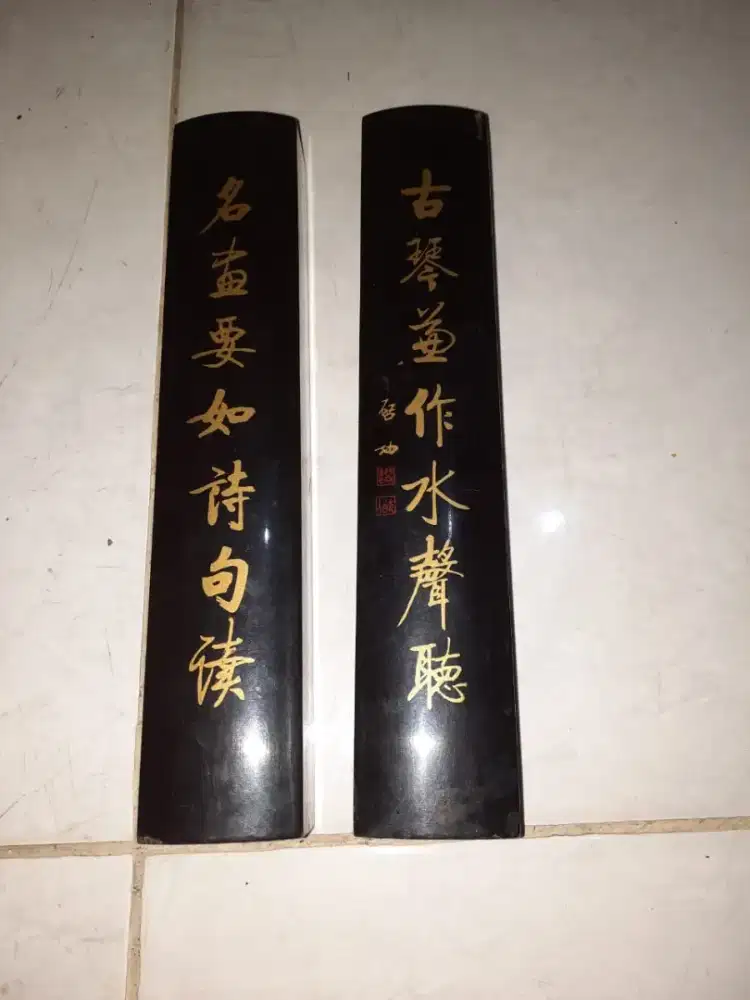 名畫要如詩句讀
古琴兼作水聲聽
启功